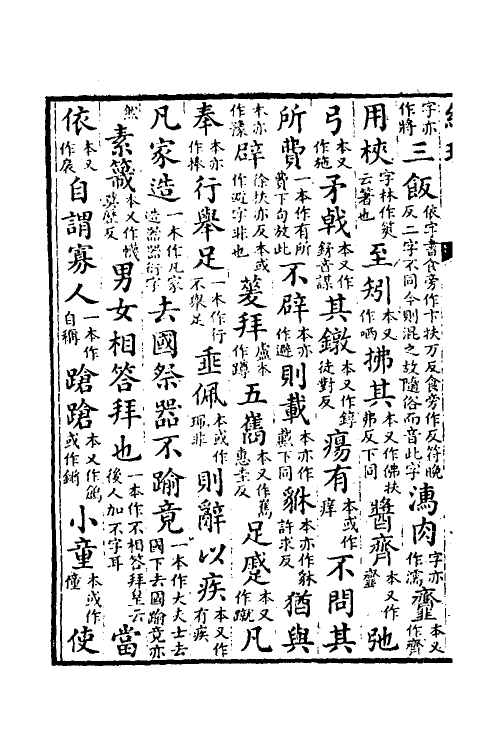 字亦作將三飯依字書食旁作卞扶万反食旁作反符晚反二字不同今則混之故隨俗而音此字濡肉字亦作濡齏本又作齊
用梜字林作筴云箸也至矧本又作哂拂其本又作佛扶弗反下同醬齊本又作齏弛
弓本又作施矛戟本又作鉾音謀其鐓本又作錞徒對反瘍有本或作痒不問其
所費一本作有所費下句放此不辟本亦作避則載本亦作戴下同貅本亦作㹯許求反猶與
本亦作豫辟徐扶亦反本或作避字非也蓌拜盧本作蹲五巂本又作惠圭反足蹙本又作蹴凡
奉本亦作捧行舉足一本作行不舉足垂佩本或作珮非則辭以疾本又作有疾
凡家造一本作凡家造器器衍字去國祭器不踰竟一本作大夫士去國下去國踰竟亦
然素簚本又作幭莫歷反男女相答拜也一本作不相答拜皇云後人加不字耳當
依本又作扆自謂寡人一本作自稱蹌蹌本又作鶬或作鏘小童本或作僮使